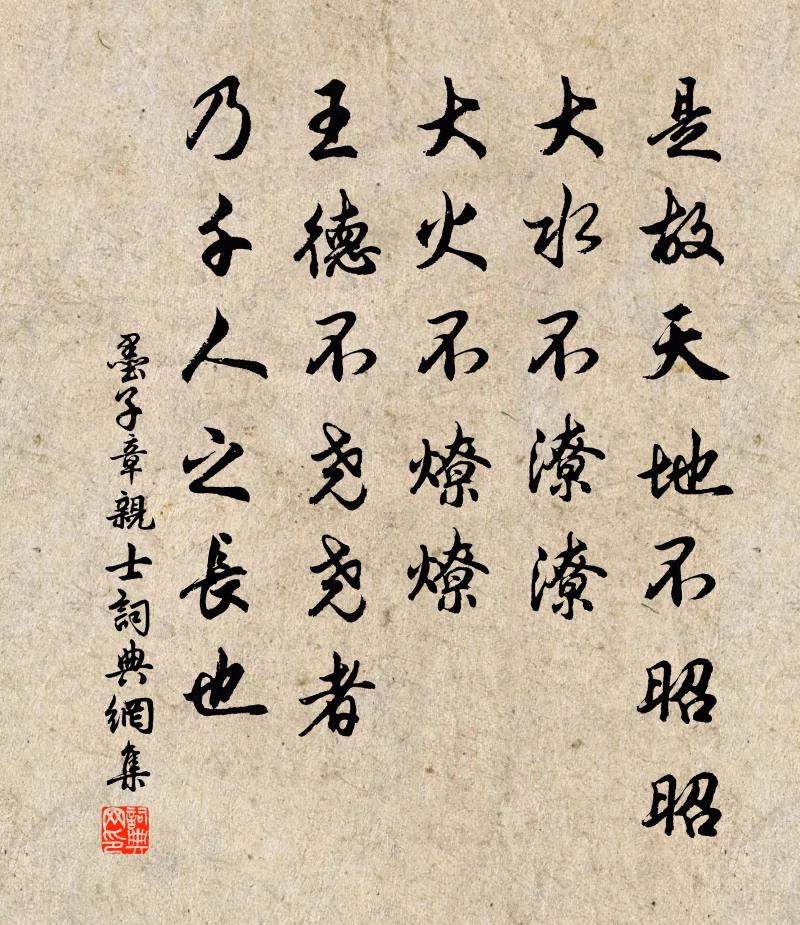 是故天地不昭昭
大水不潦潦
大火不燎燎
王德不尧尧者
乃千人之長也
墨子章親士詞典網集
詞典网印